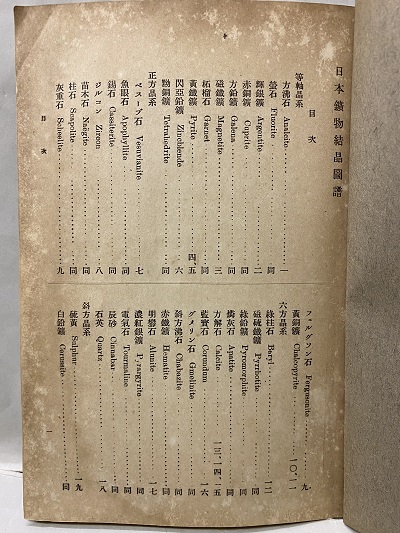 日本鑛物結晶圖譜
目次
等軸晶系
方沸石 Analcite 一
螢石 Fluorite 同
輝銀鑛 Argentite 二
赤銅鑛 Cuprite 同
方鉛鑛 Galena 同
磁鐵鑛 Magnetite 三
柘榴石 Garnet 同
黃鐵鑛 Pyrite 四、五
閃亞鉛鑛 Zincblende 六
黝銅鑛 Tetrahedrite 同
正方晶系
ベスーブ石 Vesuvianite 七
魚眼石 Apophyllite 同
錫石 Cassiterite 同
ジルコン Zircon 八
苗木石 Naëgite 同
柱石 Scapolite 同
灰重石 Scheelite 九
フェルグソン石 Fergusonite 九
黃銅鑛 Chalcopyrite 一〇、一一
六方晶系
綠柱石 Beryl 一二
磁硫鐵鑛 Pyrrhotite 同
綠鉛鑛 Pyromorphite 同
燐灰石 Apatite 同
藍寶石 Corundum 一六
方解石 Calcite 一三、一四、一五
グメリン石 Gmelinite 同
斜方沸石 Chabazite 同
赤鐵鑛 Hematite 同
明礬石 Alunite 一七
濃紅銀鑛 Pyrargyrite 同
電氣石 Tourmaline 同
辰砂 Cinnabar 同
石英 Quartz 一八
斜方晶系
硫黃 Sulphur 一九
白鉛鑛 Cerussite 同
目次
一